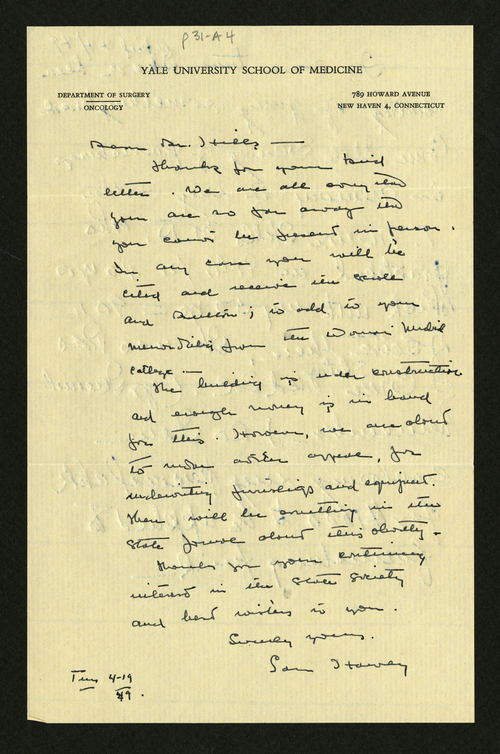 p31-A4
YALE UNIVERSITY SCHOOL OF MEDICINE
DEPARTMENT OF SURGERY
ONCOLOGY
789 HOWARD AVENUE
NEW HAVEN 4, CONNECTICUT
Dear Dr. Hills —
Thanks for your kind
letter. We are all sorry that
you are so far away that
you can't be present in person.
In any case you will be
cited and receive the scroll
and ; to add to your
memorabilia from the Woman's Medical
College —
The building is under construction
and enough money is in hand
for this. However, we are about
to make another appeal, for
underwriting furnishings and equipment.
There will be something in the
State Journal about this shortly.
Thanks for your continuing
interest in the State Society
and best wishes to you.
Sincerely yours.
Sam Harvey
Tues 4-19
49.